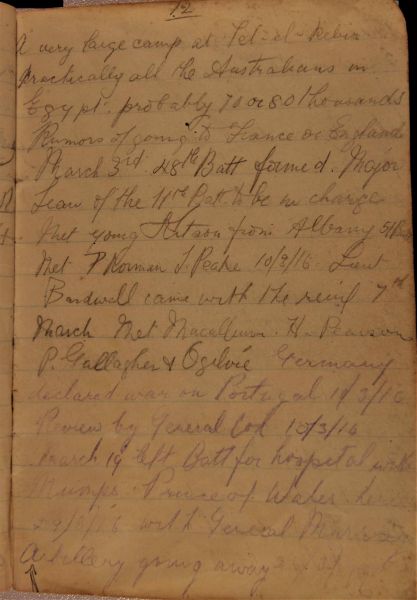 12
A very large camp at Tel-el-Kebir
Practically all the Australians in
Egypt. probably 70 or 80 thousands
Rumors of going to France or England
March 3rd. 48th Batt formed. Major
Lean of the 11th Batt. to be in charge
Met young from Albany
Met Norman J. Peake 10/3/16. Lieut
Bardwell came with the reinf 7th
March Met Macallum. H. Pearson
P. Gallagher & Ogilvie Germany
declared war on Portugal 3/16
Review by General Cox 15/3/16
March 19 left Batt for hospital with
Mumps. Prince of Wales here
29/3/16 with General
Artillery going away